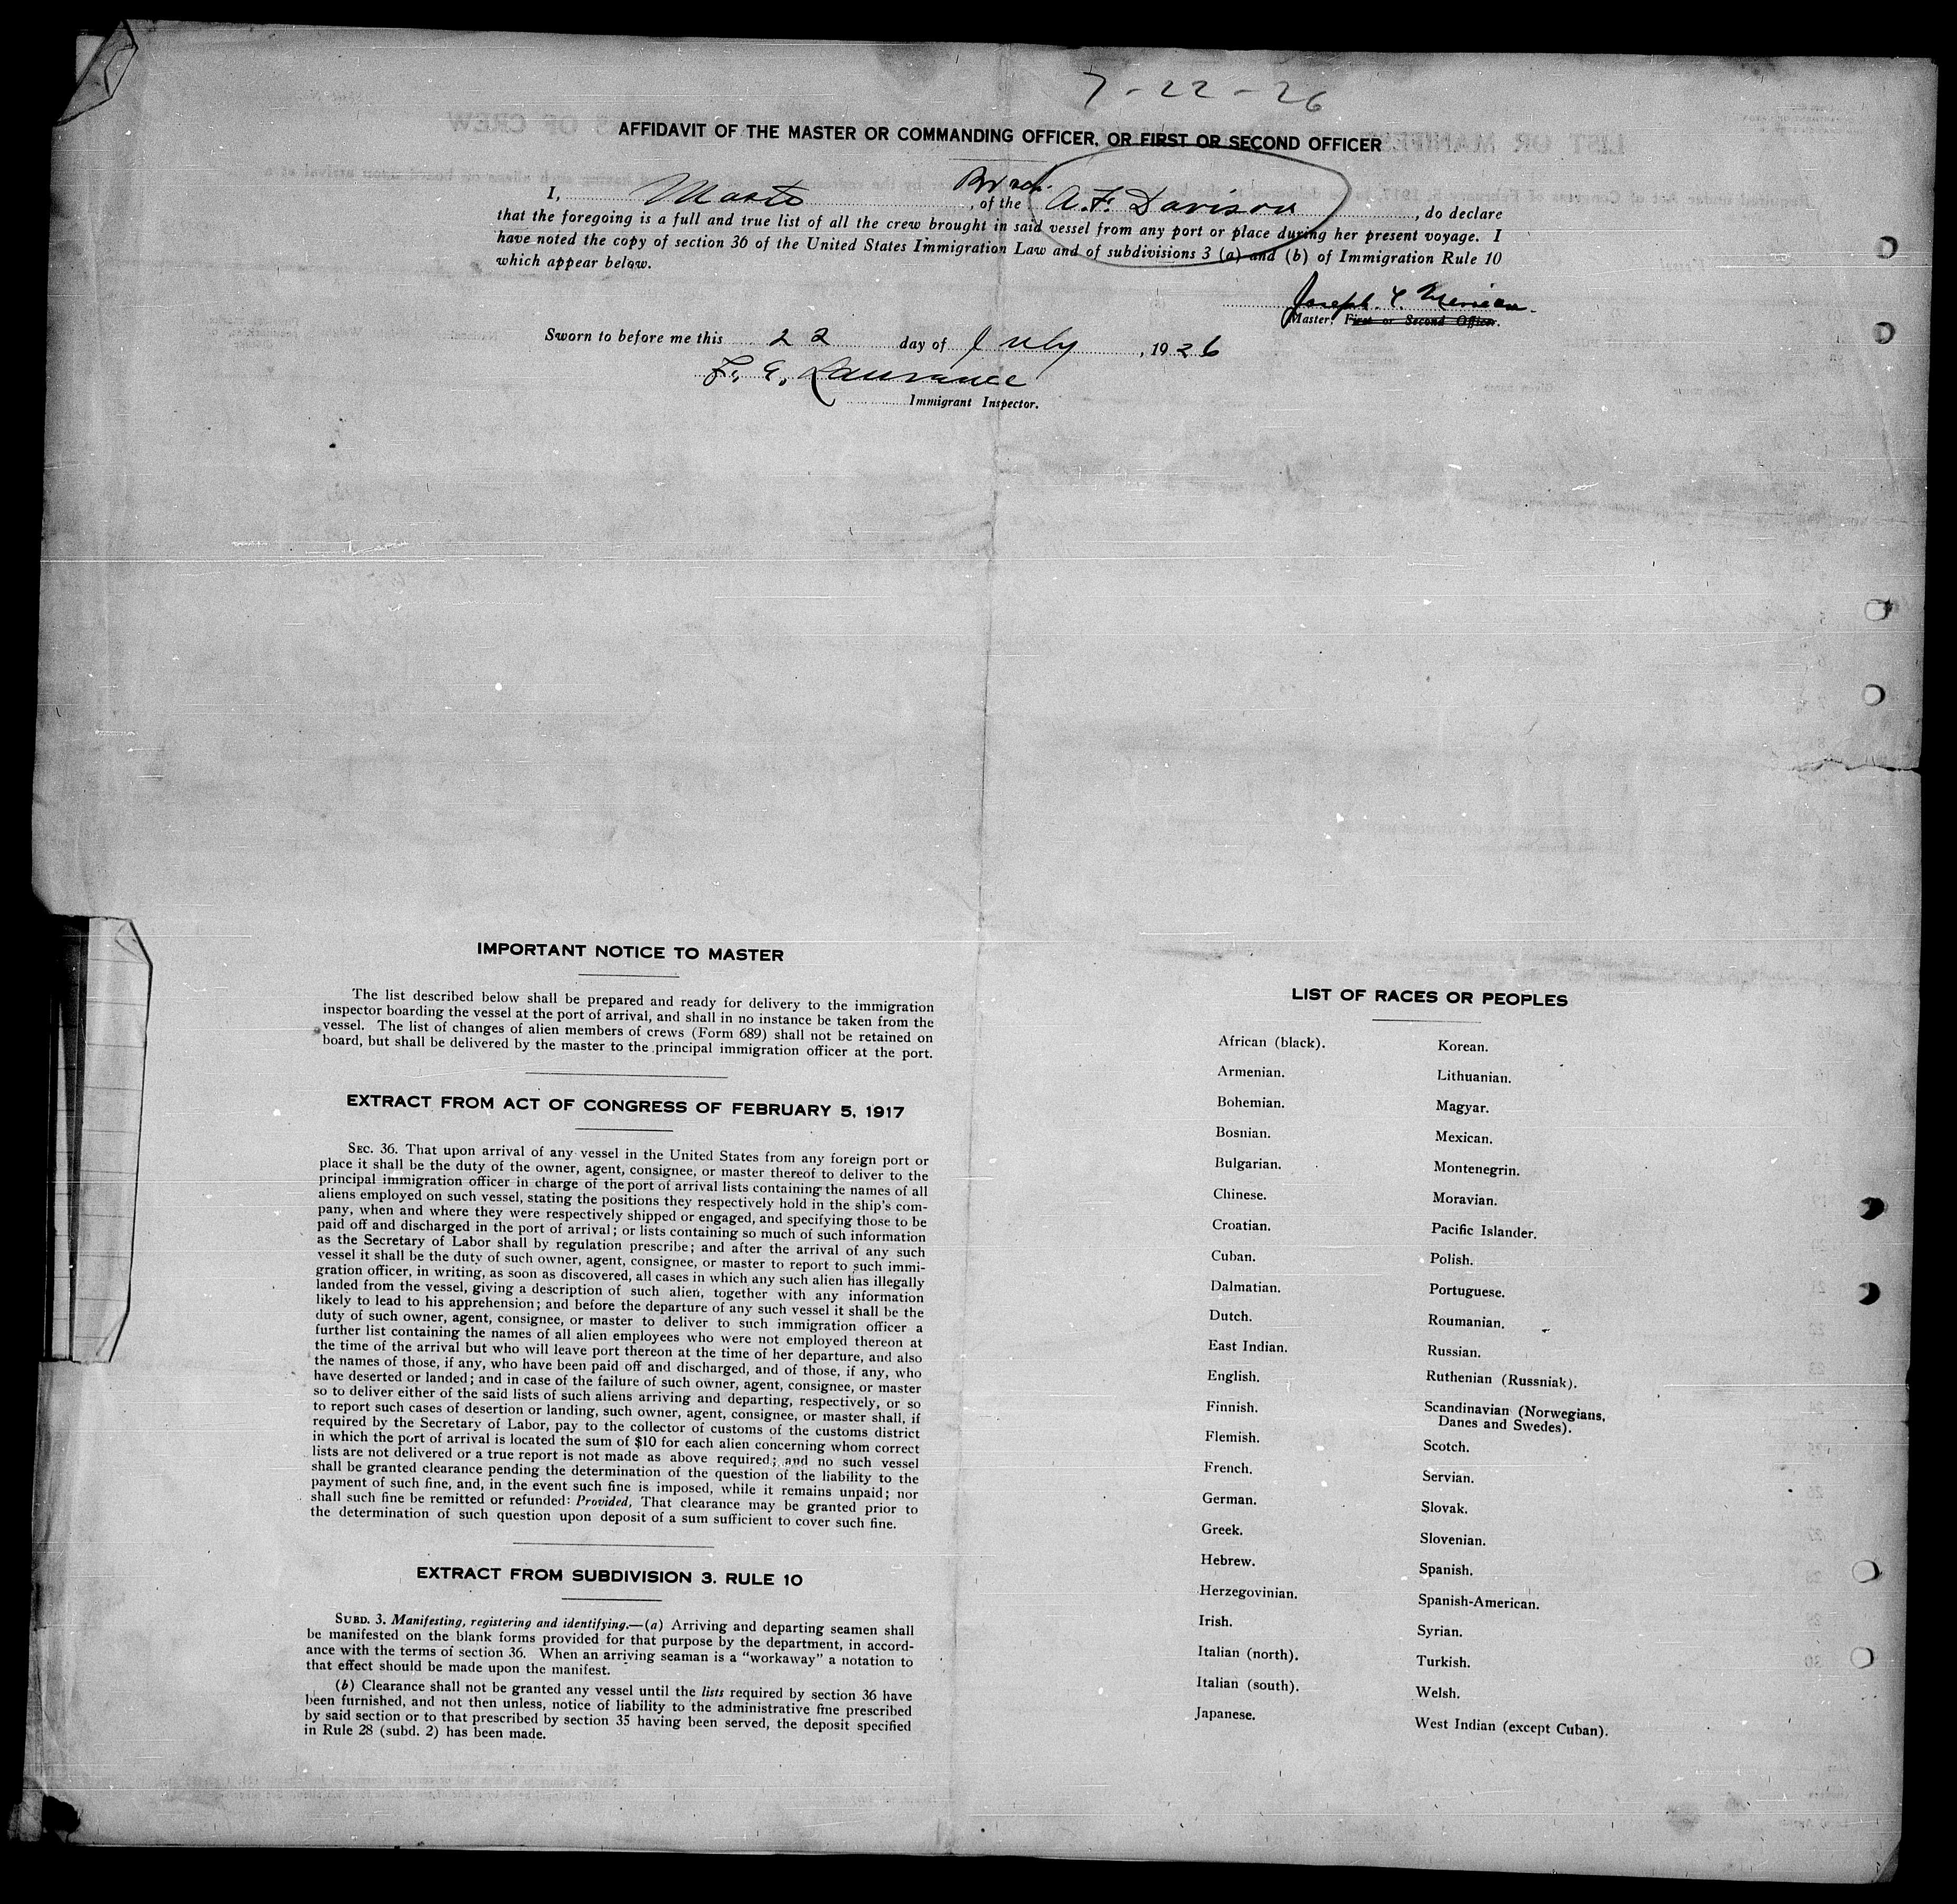 7-22-26
AFFIDAVIT OF THE MASTER OR COMMANDING OFFICER, OR FIRST OR SECOND OFFICER
Br sch.
I, Master, of the A.F. Davison, do declare
that the foregoing is a full and true list of all the crew brought in said vessel from any port or place during her present voyage. I
have noted the copy of section 36 of the United States Immigration Law and of subdivisions 3 (a) and (b) of Immigration Rule 10
which appear below.
Joseph
Master, First or Second Officer.
Sworn to before me this 22 day of July, 1926
F. E. Laurance
Immigrant Inspector.
IMPORTANT NOTICE TO MASTER
The list described below shall be prepared and ready for delivery to the immigration
inspector boarding the vessel at the port of arrival, and shall in no instance be taken from the
vessel. The list of changes of alien members of crews (Form 689) shall not be retained on
board, but shall be delivered by the master to the principal immigration officer at the port.
EXTRACT FROM ACT OF CONGRESS OF FEBRUARY 5, 1917
SEC. 36. That upon arrival of any vessel in the United States from any foreign port or
place it shall be the duty of the owner, agent, consignee, or master thereof to deliver to the
principal immigration officer in charge of the port of arrival lists containing the names of all
aliens employed on such vessel, stating the positions they respectively hold in the ship's com-
pany, when and where they were respectively shipped or engaged, and specifying those to be
paid off and discharged in the port of arrival; or lists containing so much of such information
as the Secretary of Labor shall by regulation prescribe; and after the arrival of any such
vessel it shall be the duty of such owner, agent, consignee, or master to report to such immi-
gration officer, in writing, as soon as discovered, all cases in which any such alien has illegally
landed from the vessel, giving a description of such alien, together with any information
likely to lead to his apprehension; and before the departure of any such vessel it shall be the
duty of such owner, agent, consignee, or master to deliver to such immigration officer a
further list containing the names of all alien employees who were not employed thereon at
the time of the arrival but who will leave port thereon at the time of her departure, and also
the names of those, if any, who have been paid off and discharged, and of those, if any, who
have deserted or landed; and in case of the failure of such owner, agent, consignee, or master
so to deliver either of the said lists of such aliens arriving and departing, respectively, or so
to report such cases of desertion or landing, such owner, agent, consignee, or master shall, if
required by the Secretary of Labor, pay to the collector of customs of the customs district
in which the port of arrival is located the sum of $10 for each alien concerning whom correct
lists are not delivered or a true report is not made as above required; and no such vessel
shall be granted clearance pending the determination of the question of the liability to the
payment of such fine, and, in the event such fine is imposed, while it remains unpaid; nor
shall such fine be remitted or refunded: Provided, That clearance may be granted prior to
the determination of such question upon deposit of a sum sufficient to cover such fine.
EXTRACT FROM SUBDIVISION 3. RULE 10
SUBD. 3. Manifesting, registering and identifying.—(a) Arriving and departing seamen shall
be manifested on the blank forms provided for that purpose by the department, in accord-
ance with the terms of section 36. When an arriving seaman is a "workaway" a notation to
that effect should be made upon the manifest.
(b) Clearance shall not be granted any vessel until the lists required by section 36 have
been furnished, and not then unless, notice of liability to the administrative fine prescribed
by said section or to that prescribed by section 35 having been served, the deposit specified
in Rule 28 (subd. 2) has been made.
LIST OF RACES OR PEOPLES
African (black).
Armenian.
Bohemian.
Bosnian.
Bulgarian.
Chinese.
Croatian.
Cuban.
Dalmatian.
Dutch.
East Indian.
English.
Finnish.
Flemish.
French.
German.
Greek.
Hebrew.
Herzegovinian.
Irish.
Italian (north).
Italian (south).
Japanese.
Korean.
Lithuanian.
Magyar.
Mexican.
Montenegrin.
Moravian.
Pacific Islander.
Polish.
Portuguese.
Roumanian.
Russian.
Ruthenian (Russniak).
Scandinavian (Norwegians,
Danes and Swedes).
Scotch.
Servian.
Slovak.
Slovenian.
Spanish.
Spanish-American.
Syrian.
Turkish.
Welsh.
West Indian (except Cuban).